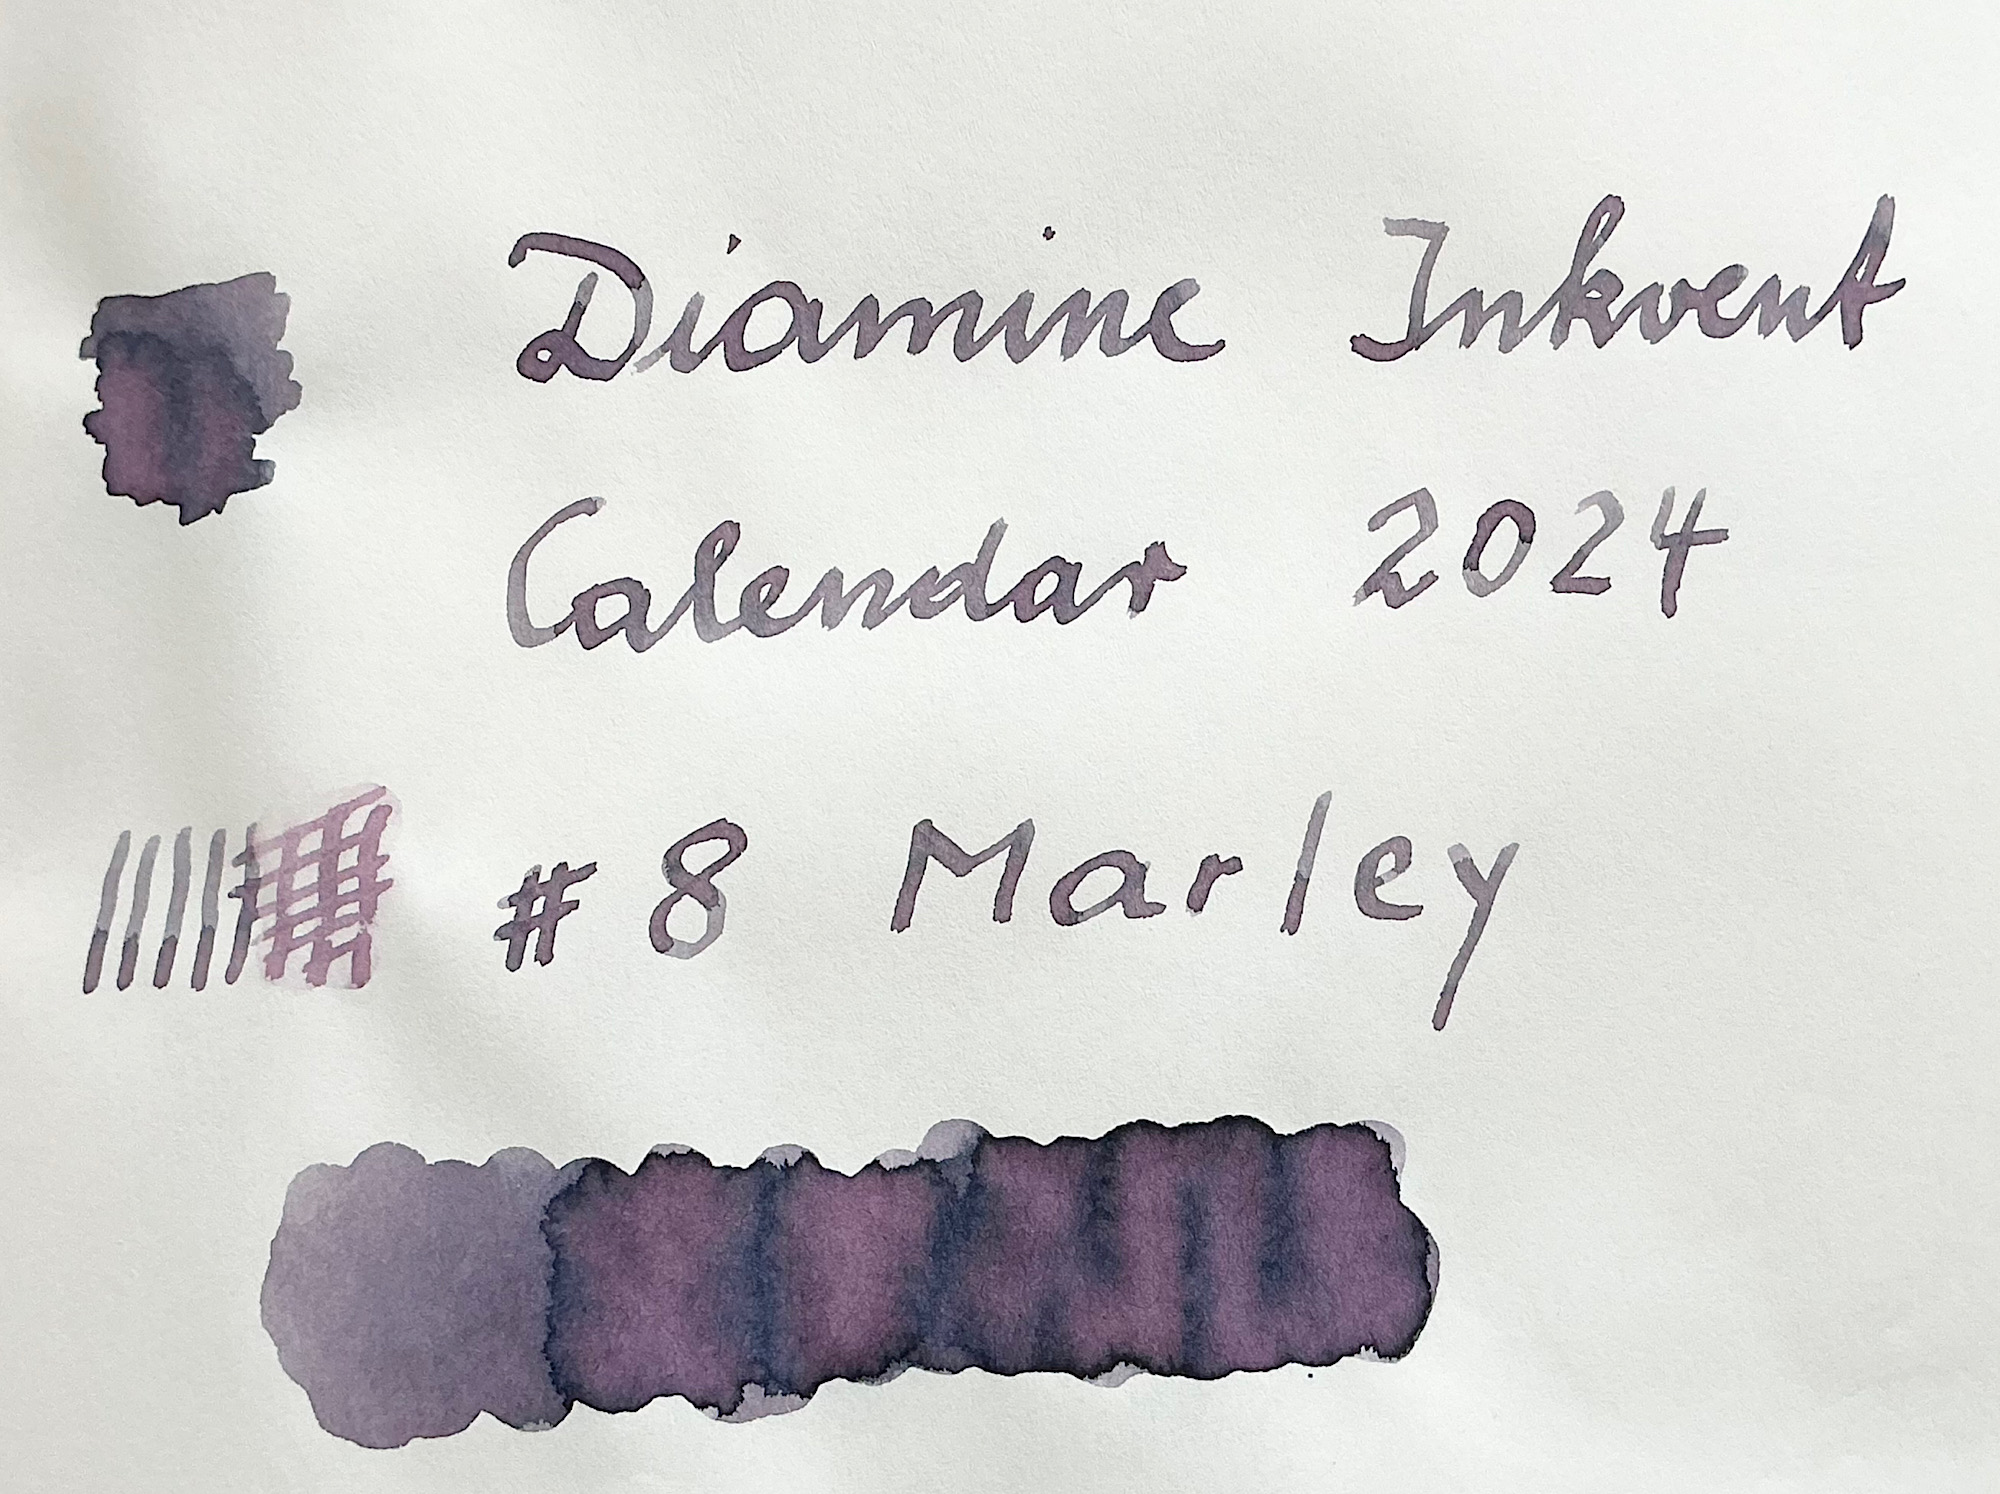 Diamine Inkvent
Calendar 2024
# 8 Marley